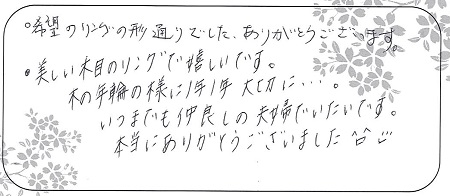 ○希望のリングの形通りでした、ありがとうございます。
●美しい木目のリングで嬉しいです。
木の年輪の様に1年1年大切に・・・。
いつまでも仲良しの夫婦でいたいです。
本当にありがとうございました^^